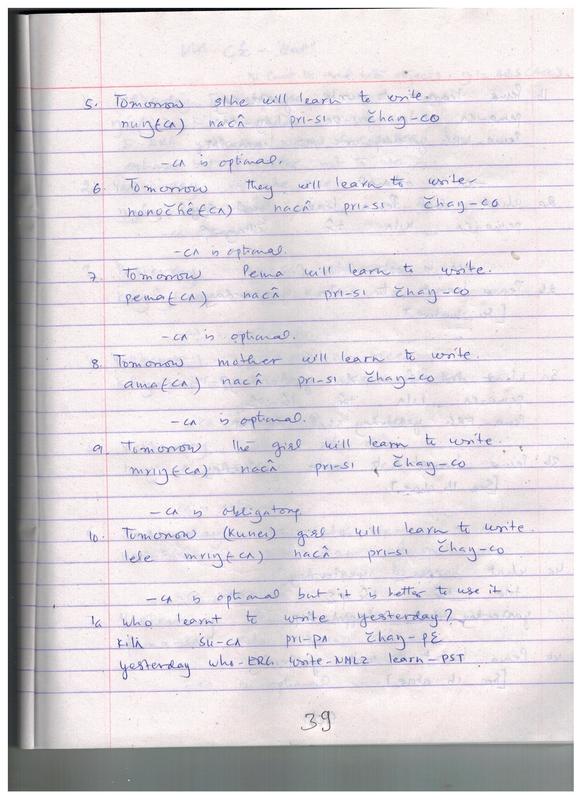 5. Tomorrow s/he will learn to write.
nuŋ(-cʌ) nacʌ̂ pri-si čhaŋ-co
-cʌ is optimal.
6. Tomorrow they will learn to write.
nonočhê(-cʌ) nacʌ̂ pri-si čhaŋ-co
-cʌ is optimal.
7. Tomorrow Pema will learn to write.
pema(-cʌ) nacʌ̂ pri-si čhaŋ-co
-cʌ is optimal.
8. Tomorrow mother will learn to write.
ama(-cʌ) nacʌ̂ pri-si čhaŋ-co
-cʌ is optimal.
9. Tomorrow the girl will learn to write.
mriŋ(-cʌ) nacʌ̂ pri-si čhaŋ-co
-cʌ is obligatory
10. Tomorrow (Kunes) girl will learn to write.
lele mriŋ(-cʌ) nacʌ̂ pri-si čhaŋ-co
-cʌ is optimal but it is better to use it.
1a who learnt to write yesterday?
tilʌ̂ su-cʌ pri-pʌ čhaŋ-pɛ
yesterday who-ERG write-NMLZ learn-PST
39